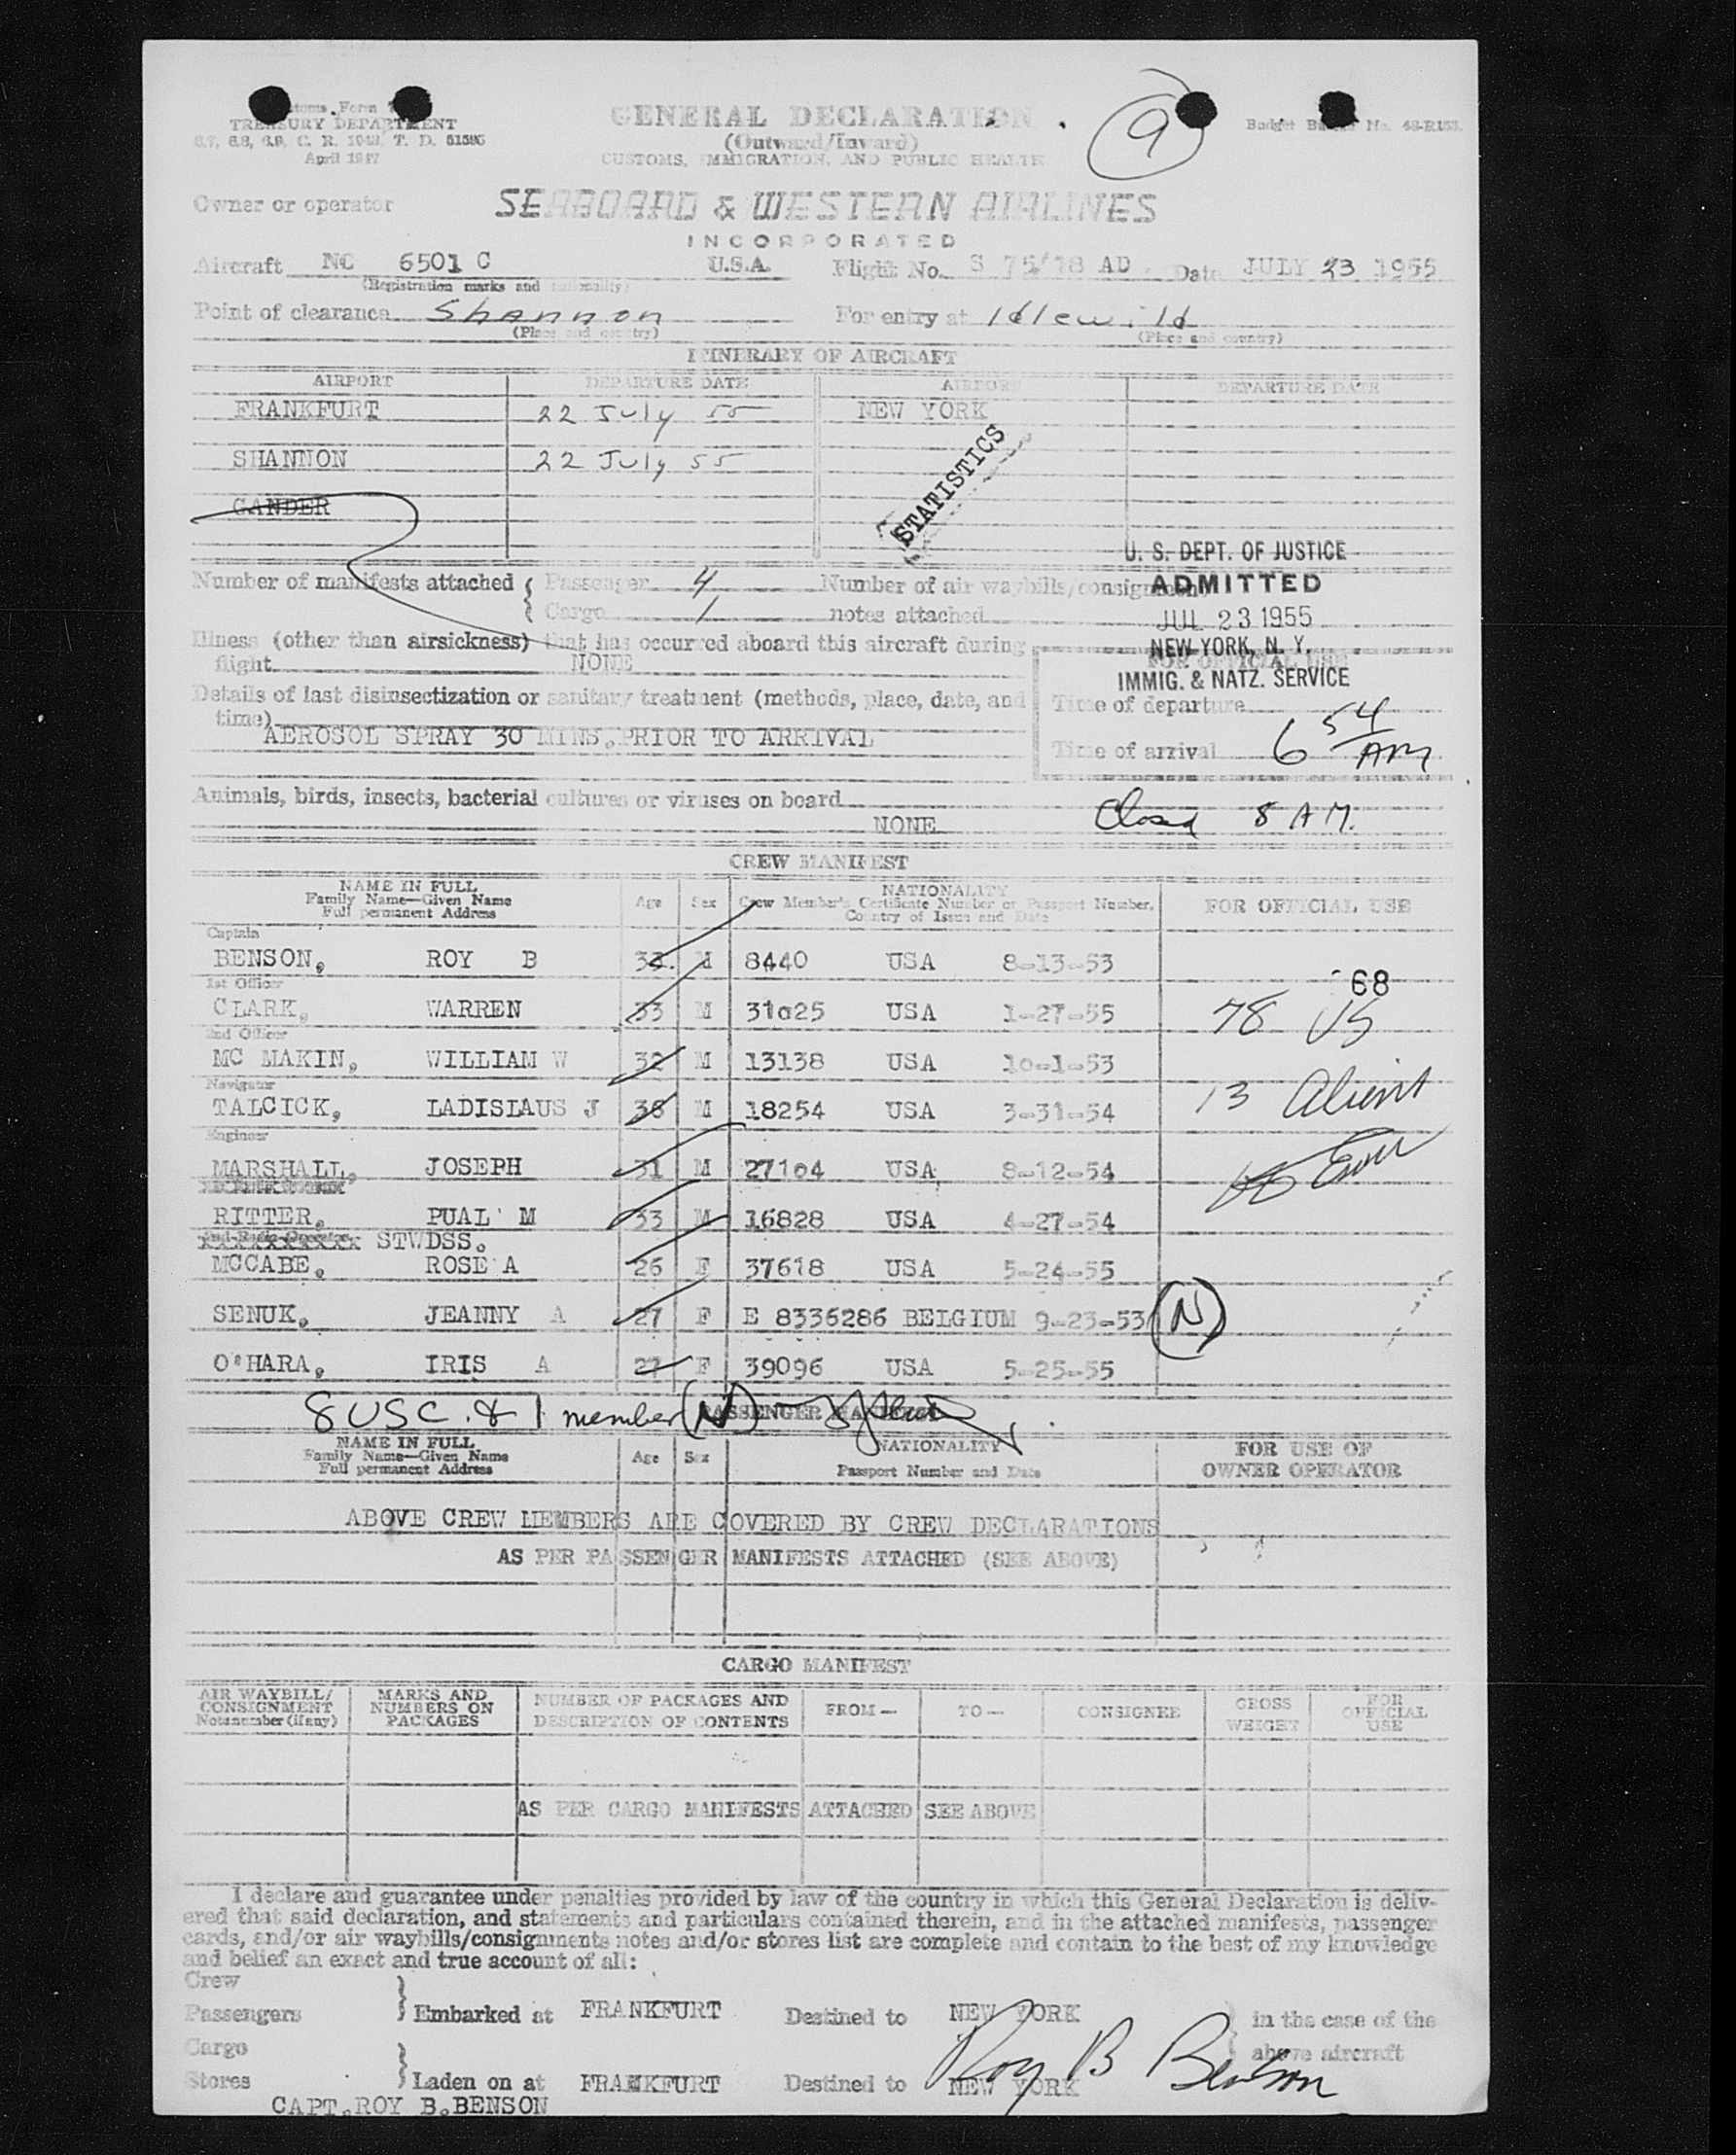 Customs Form
TREASURY DEPARTMENT
6.7, 6.8, 6.9, C. R. 1943, T. D. 51595
April 1947
GENERAL DECLARATION
(Outward/Inward)
CUSTOMS, IMMIGRATION, AND PUBLIC HEALTH
9
Budget Bureau No. 48-R153.
Owner or operator SEABOARD & WESTERN AIRLINES
INCORPORATED
Aircraft NC 6501 C U.S.A. Flight No. S 75/78 AD Date JULY 23 1955
(Registration marks and nationality)
Point of clearance Shannon For entry at Idlewild
(Place and country) (Place and country)
ITINERARY OF AIRCRAFT
AIRPORT DEPARTURE DATE AIRPORT DEPARTURE DATE
FRANKFURT 22 July 55 NEW YORK
SHANNON 22 July 55
GANDER
STATISTICS
U. S. DEPT. OF JUSTICE
ADMITTED
JUL 23 1955
NEW YORK, N. Y.
IMMIG. & NATZ. SERVICE
Number of manifests attached { Passenger 4 Number of air waybills/consignment
Cargo 1 notes attached
Illness (other than airsickness) that has occurred aboard this aircraft during
flight NONE
FOR OFFICIAL USE
Details of last disinsectization or sanitary treatment (methods, place, date, and
time)
AEROSOL SPRAY 30 MINS. PRIOR TO ARRIVAL
Time of departure
Time of arrival 6 54 AM
Animals, birds, insects, bacterial cultures or viruses on board
NONE
Closed 8 AM.
CREW MANIFEST
NAME IN FULL
Family Name—Given Name
Full permanent Address
Age Sex
NATIONALITY
Crew Member's Certificate Number or Passport Number,
Country of Issue and Date
FOR OFFICIAL USE
Captain
BENSON, ROY B M 8440 USA 8-13-53
1st Officer
68
CLARK, WARREN 33 M 31025 USA 1-27-55
78 US
2nd Officer
MC MAKIN, WILLIAM W 32 M 13138 USA 10-1-53
Navigator
TALCICK, LADISLAUS J 36 M 18254 USA 3-31-54
13 Alient
Engineer
MARSHALL, JOSEPH 31 M 27104 USA 8-12-54
RITTER, PUAL M 33 M 16828 USA 4-27-54
2nd Radio Operator STWDSS.
MCCABE, ROSE A 26 F 37618 USA 5-24-55
SENUK, JEANNY A 27 F E 8336286 BELGIUM 9-23-53 (N)
O'HARA, IRIS A 22 F 39096 USA 5-25-55
8 USC. & 1 member (N)
PASSENGER MANIFEST
NAME IN FULL
Family Name—Given Name
Full permanent Address
Age Sex
NATIONALITY
Passport Number and Date
FOR USE OF
OWNER OPERATOR
ABOVE CREW MEMBERS ARE COVERED BY CREW DECLARATIONS
AS PER PASSENGER MANIFESTS ATTACHED (SEE ABOVE)
CARGO MANIFEST
AIR WAYBILL/
CONSIGNMENT
Note number (if any)
MARKS AND
NUMBERS ON
PACKAGES
NUMBER OF PACKAGES AND
DESCRIPTION OF CONTENTS
FROM— TO— CONSIGNEE
GROSS
WEIGHT
FOR
OFFICIAL
USE
AS PER CARGO MANIFESTS ATTACHED SEE ABOVE
I declare and guarantee under penalties provided by law of the country in which this General Declaration is deliv-
ered that said declaration, and statements and particulars contained therein, and in the attached manifests, passenger
cards, and/or air waybills/consignments notes and/or stores list are complete and contain to the best of my knowledge
and belief an exact and true account of all:
Crew
Passengers } Embarked at FRANKFURT Destined to NEW YORK } in the case of the
Cargo above aircraft
Stores } Laden on at FRANKFURT Destined to NEW YORK
Roy B Benson
CAPT. ROY B. BENSON